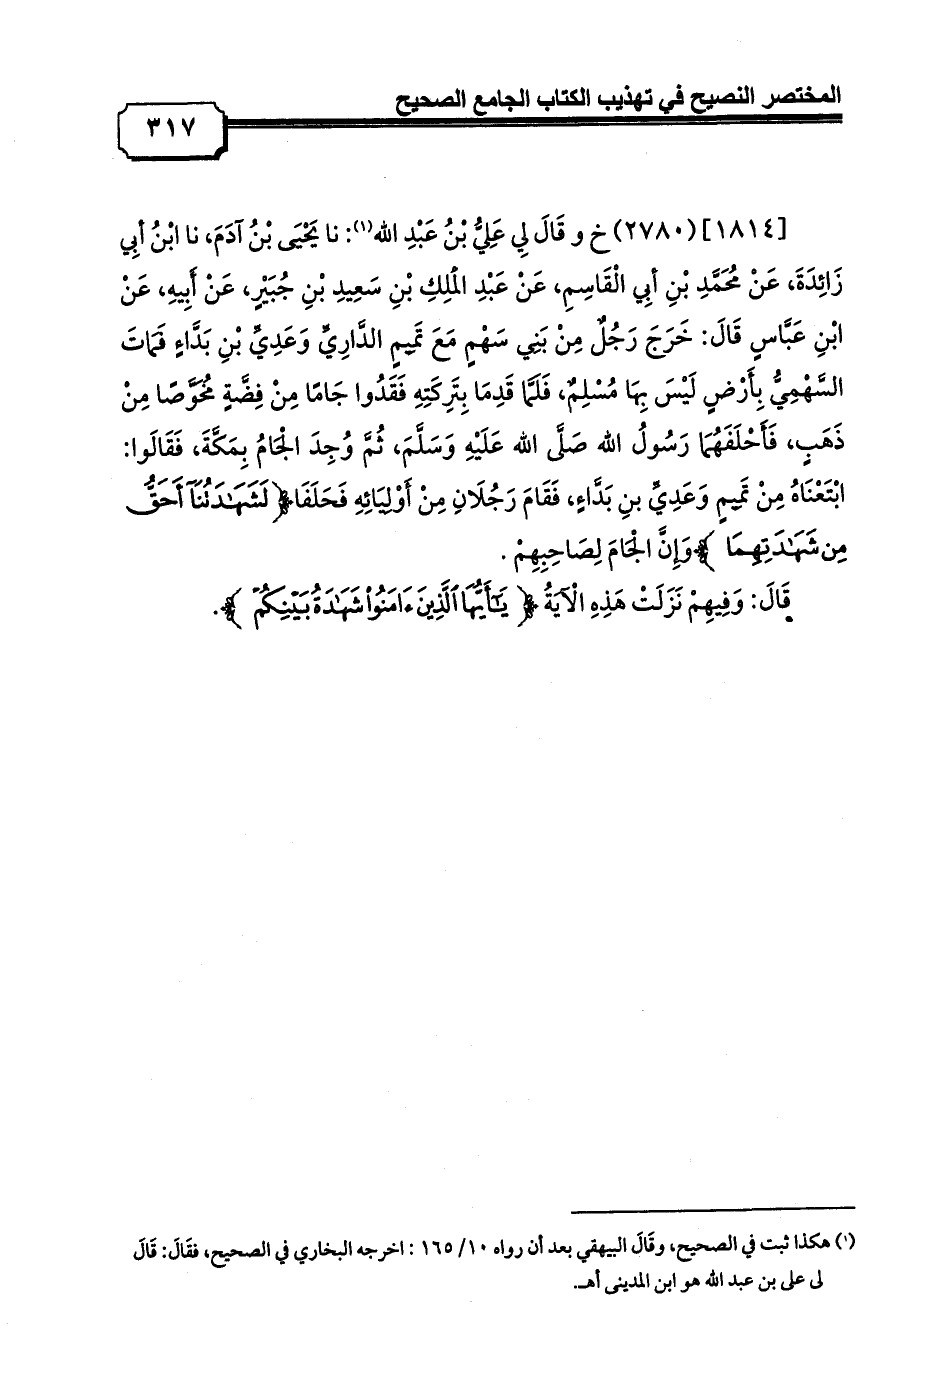 المختصر النصيح في تهذيب الكتاب الجامع الصحيح
٣١٧
[١٨١٤] (٢٧٨٠) خ و قَالَ لِي عَلِيُّ بْنُ عَبْدِ الله(١): نا يَحْيَى بْنُ آدَمَ، نا ابْنُ أبِي
زَائِدَةَ، عَنْ مُحَمَّدِ بْنِ أبِي الْقَاسِمِ، عَنْ عَبْدِ الْمَلِكِ بْنِ سَعِيدِ بْنِ جُبَيْرٍ، عَنْ أَبِيهِ، عَنْ
ابْنِ عَبَّاسٍ قَالَ: خَرَجَ رَجُلٌ مِنْ بَنِي سَهْمٍ مَعَ تَمِيمٍ الدَّارِيِّ وَعَدِيِّ بْنِ بَدَّاءٍ فَمَاتَ
السَّهْمِيُّ بِأَرْضٍ لَيْسَ بِهَا مُسْلِمٌ، فَلَمَّا قَدِمَا بِتَرِكَتِهِ فَقَدُوا جَامًا مِنْ فِضَّةٍ مُخَوَّصًا مِنْ
ذَهَبٍ، فَأَحْلَفَهُمَا رَسُولُ الله صَلَّى الله عَلَيْهِ وَسَلَّمَ، ثُمَّ وُجِدَ الْجَامُ بِمَكَّةَ، فَقَالُوا:
ابْتَعْنَاهُ مِنْ تَمِيمٍ وَعَدِيِّ بنِ بَدَّاءٍ، فَقَامَ رَجُلَانِ مِنْ أَوْلِيَائِهِ فَحَلَفَا﴿ لَشَهَٰدَتُنَآ أَحَقُّ
مِن شَهَٰدَتِهِمَا ﴾وَإِنَّ الْجَامَ لِصَاحِبِهِمْ .
قَالَ: وَفِيهِمْ نَزَلَتْ هَذِهِ الْآيَةُ ﴿ يَٰٓأَيُّهَا ٱلَّذِينَ ءَامَنُوا۟ شَهَٰدَةُ بَيْنِكُمْ ﴾.
(١) هكذا ثبت في الصحيح، وقَالَ البيهقي بعد أن رواه ١٠/ ١٦٥ : اخرجه البخاري في الصحيح، فقَالَ: قَالَ
لى على بن عبد الله هو ابن المدينى أهـ.